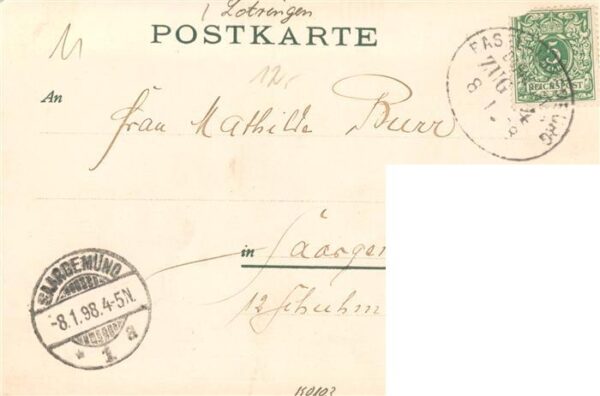 Lotringen
POSTKARTE
12.-
An
Frau Mathilde Burr
5
REICHSPOST
ZUG
8 1
in Saargem
12 Schuhm
SAARGEMÜND
-8.1.98.4-5N.
* 1 a
K0103